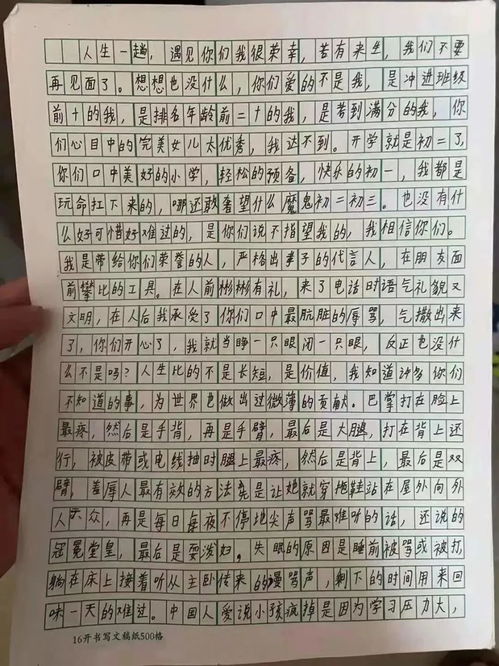 人生一趟，遇见你们我很荣幸，若有来生，我们不要
再见面了。想想也没什么，你们爱的不是我，是冲进班级
前十的我，是排名年龄前二十的我，是考到满分的我，你
们心目中的完美女儿太优秀，我达不到。开学就是初二了，
你们口中美好的小学，轻松的预备，快乐的初一，我都是
玩命扛下来的，哪还敢奢望什么魔鬼初二初三。也没有什
么好可惜好难过的，是你们说不指望我的，我相信你们。
我是带给你们荣誉的人，严格出事子的代言人，在朋友面
前攀比的工具。在人前彬彬有礼，来了电话时语气礼貌又
文明，在人后我承受了你们口中最肮脏的辱骂，气撒出来
了，你们开心了，我就当睁一只眼闭一只眼，反正也没什
么不是吗？人生比的不是长短，是价值，我知道许多你们
不知道的事，为世界也做出过微薄的贡献。巴掌打在脸上
最疼，然后是手背，再是手臂，最后是大腿，打在背上还
行，被皮带或电线抽时腿上最疼，然后是背上，最后是双
臂，羞辱人最有效的方法先是让她就穿拖鞋站在屋外向外
人示众，再是每日每夜不停地尖声骂最难听的话，还说的
冠冕堂皇，最后是耍泼妇。失眠的原因是睡前被骂或被打，
躺在床上接着听从主卧传来的谩骂声，剩下的时间用来回
味一天的难过。中国人爱说小孩疯掉是因为学习压力大，
16开书写文稿纸500格